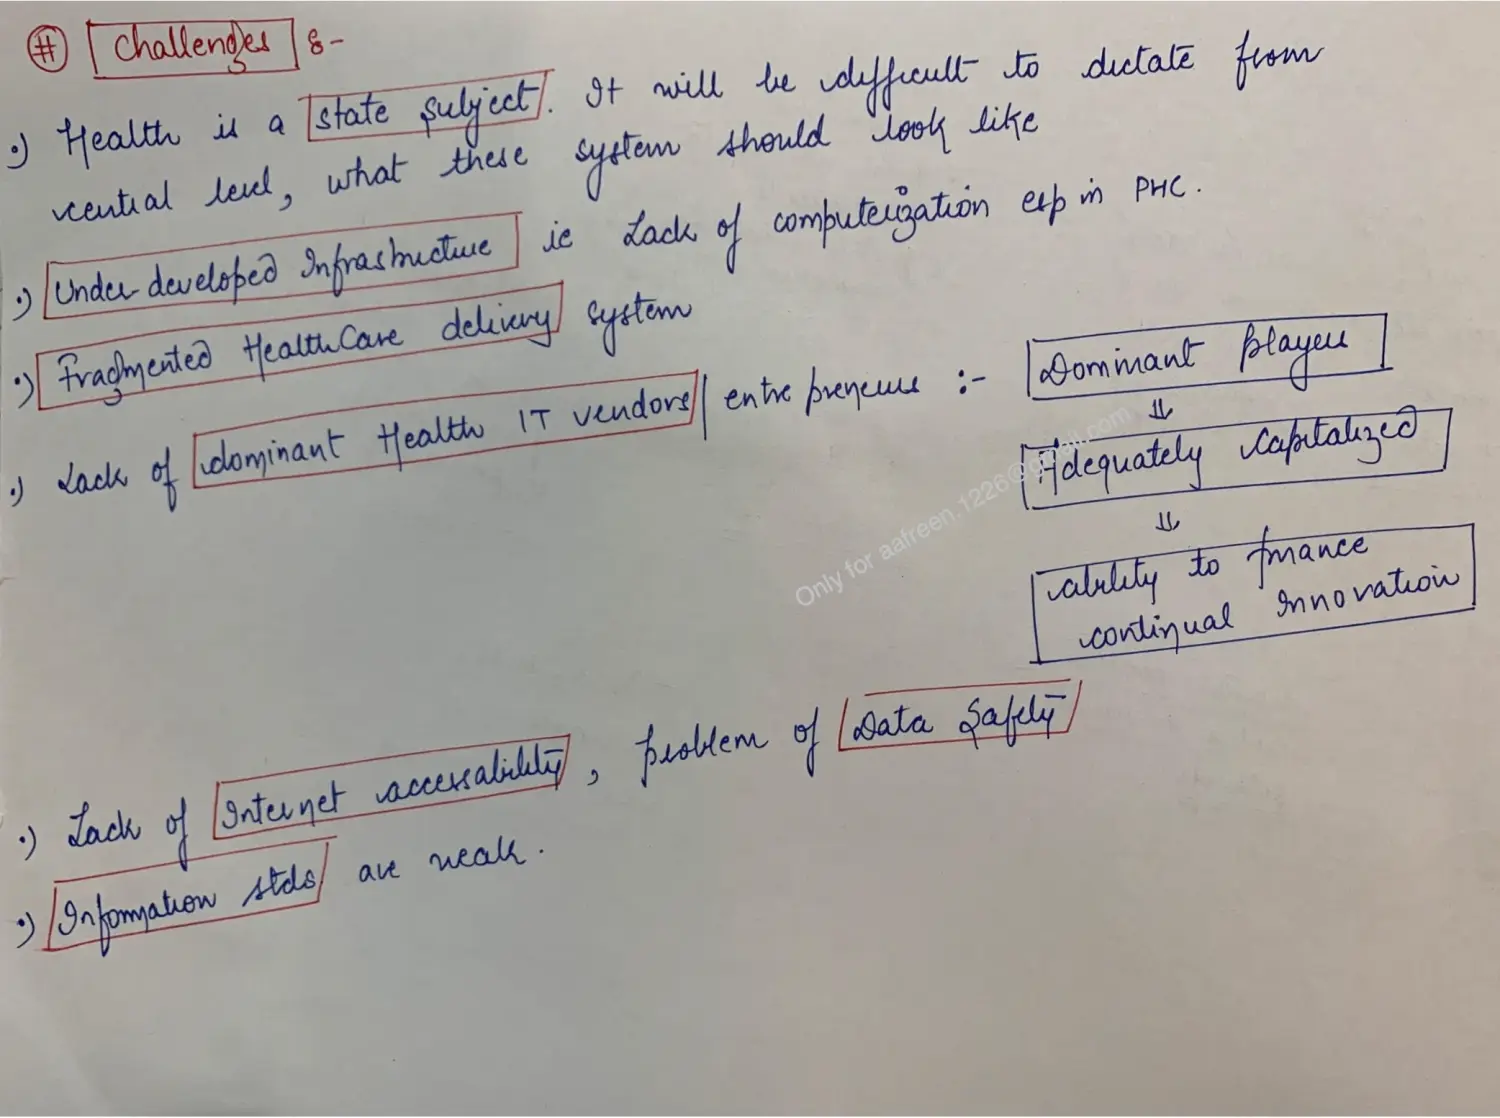 # Challenges :-
•) Health is a state subject. It will be difficult to dictate from
central level, what these system should look like
•) Under developed Infrastructure ie Lack of computerization esp in PHC.
•) Fragmented HealthCare delivery system
•) Lack of dominant Health IT vendors / entrepreneurs :-
Dominant players
⇓
Adequately Capitalized
⇓
ability to finance
continual Innovation
•) Lack of Internet accessability, problem of Data Safety
•) Information stds are weak.
Only for aafreen.1226@gmail.com